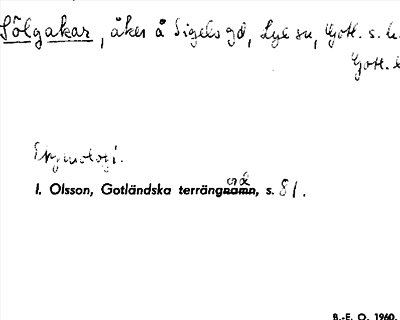 Sölgakar, åker å Sigels gd, Lye sn, Gotl. s. h.
Gotl. l
Etymologi.
ord
I. Olsson, Gotländska terrängnamn, s. 81.
B.-E. O. 1960.